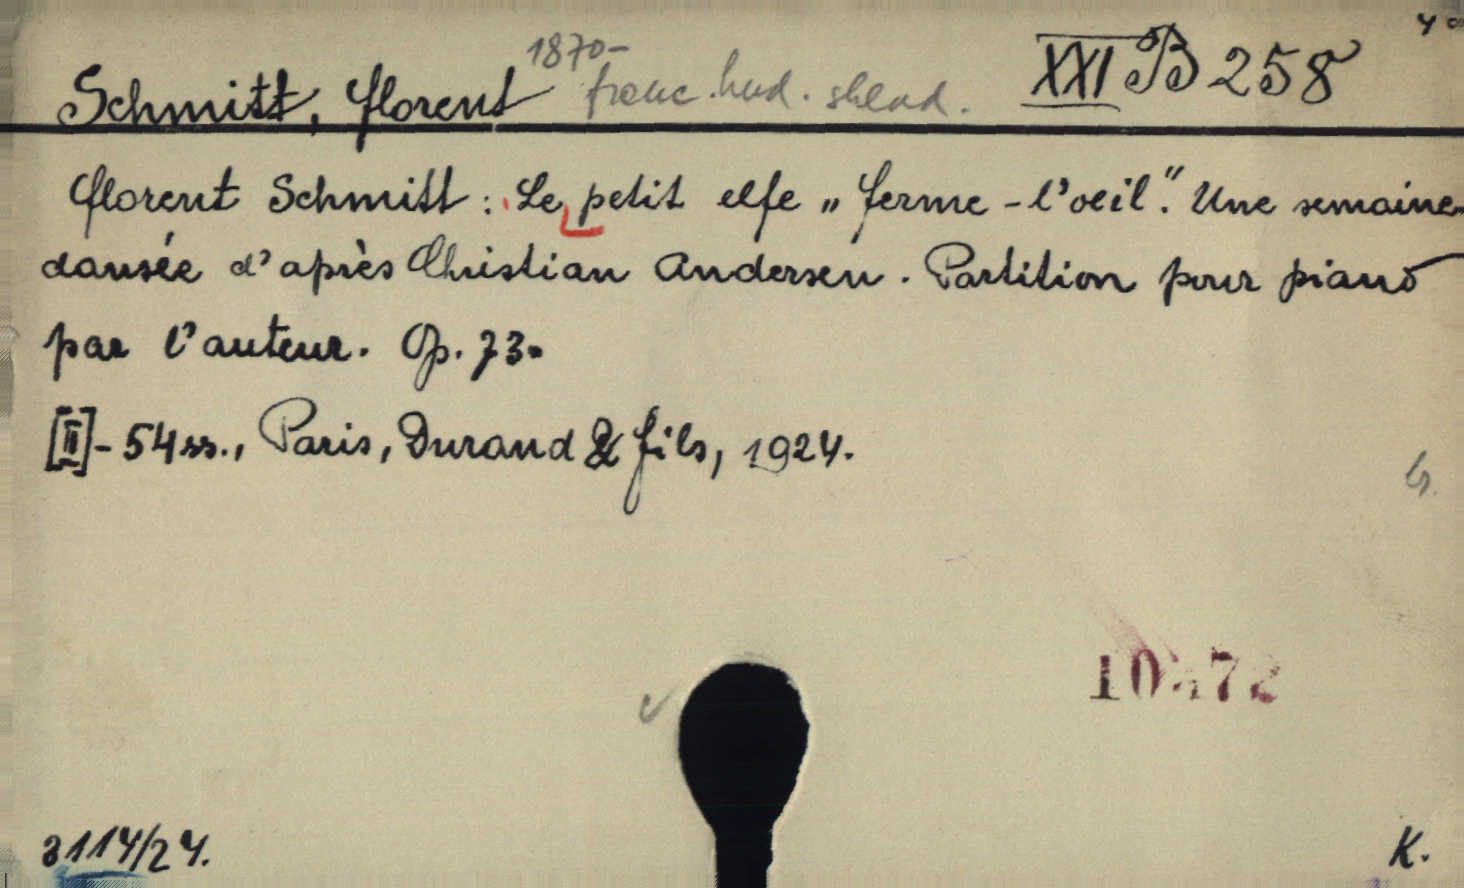 1870-
Schmitt, Florent franc. hud. sklad. XXI B 258
Florent Schmitt: Le petit elfe „ferme-l'oeil". Une semaine
dansée d'après Christian Andersen. Partition pour piano
par l'auteur. Op. 73.
[II]-54 ss., Paris, Durand & fils, 1924.
3114/24.
K.